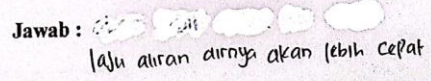 Jawab :
laju aliran airnya akan lebih cepat